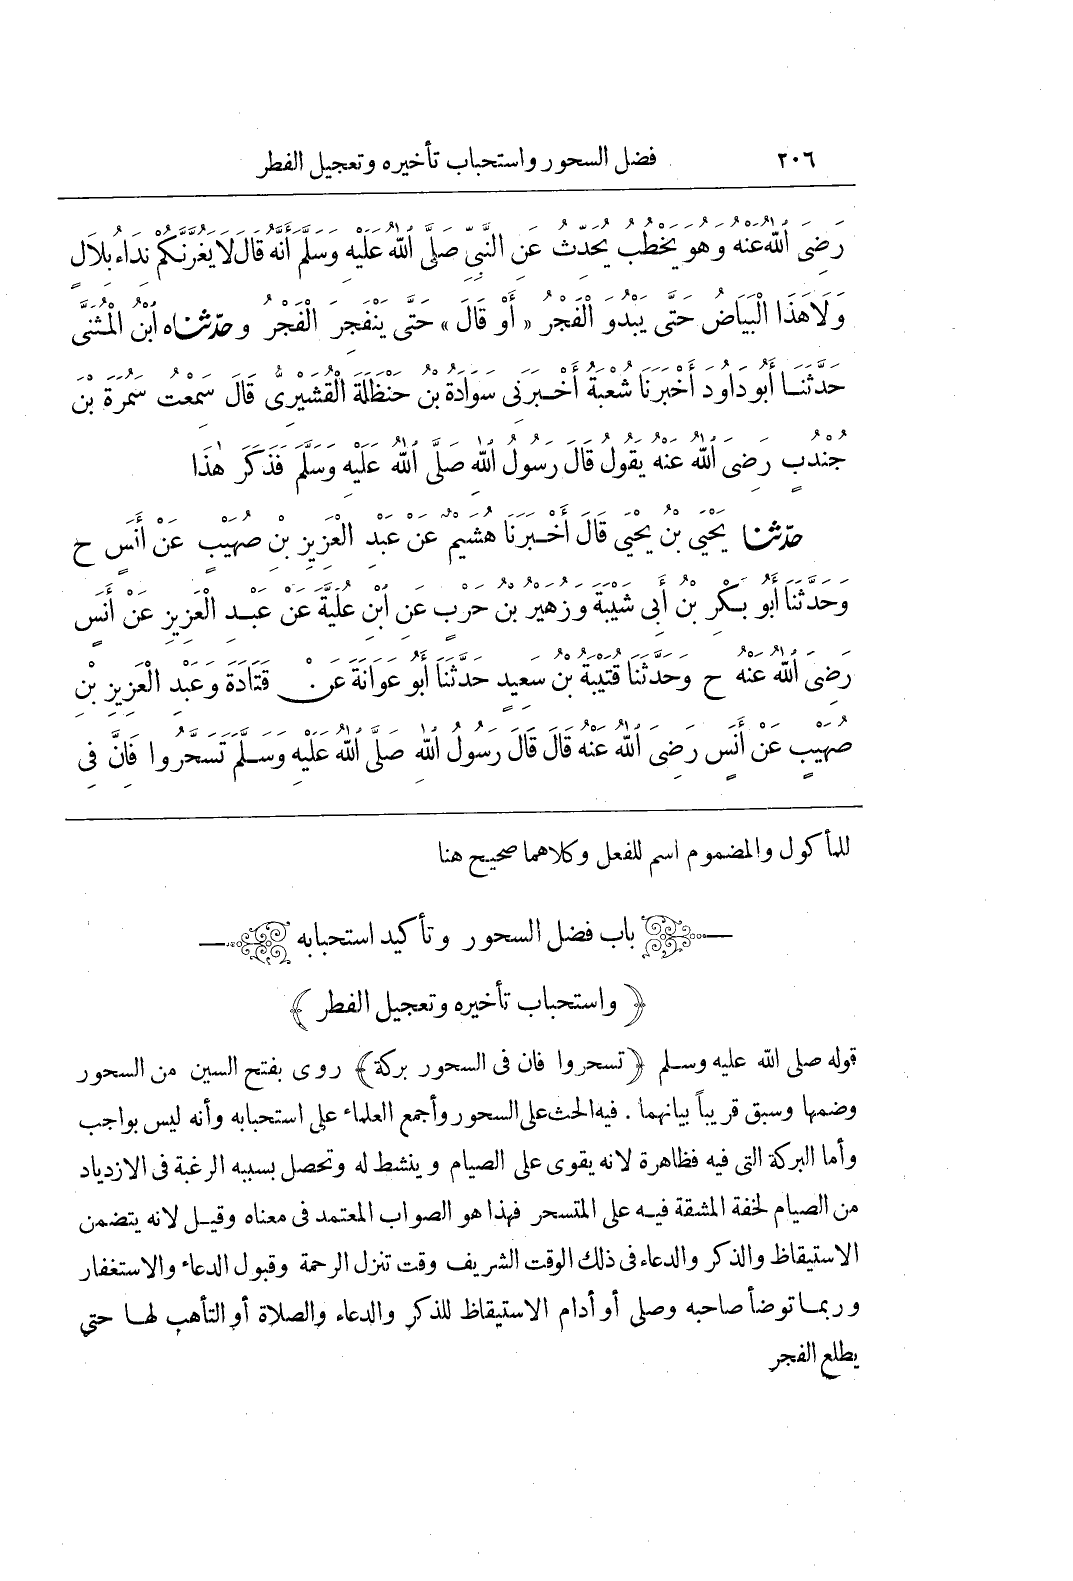 ٢٠٦ فضل السحور واستحباب تأخيره وتعجيل الفطر
رَضِىَ اللهُ عَنْهُ وَهُوَ يَخْطُبُ يُحَدِّثُ عَنِ النَّبِيِّ صَلَّى اللهُ عَلَيْهِ وَسَلَّمَ أَنَّهُ قَالَ لَا يَغُرَّنَّكُمْ نِدَاءُ بِلَالٍ
وَلَا هَذَا الْبَيَاضُ حَتَّى يَبْدُوَ الْفَجْرُ «أَوْ قَالَ» حَتَّى يَنْفَجِرَ الْفَجْرُ وحدّثناه ابْنُ الْمُثَنَّى
حَدَّثَنَا أَبُو دَاوُدَ أَخْبَرَنَا شُعْبَةُ أَخْبَرَنِى سَوَادَةُ بْنُ حَنْظَلَةَ الْقُشَيْرِىُّ قَالَ سَمِعْتُ سَمُرَةَ بْنَ
جُنْدُبٍ رَضِىَ اللهُ عَنْهُ يَقُولُ قَالَ رَسُولُ اللهِ صَلَّى اللهُ عَلَيْهِ وَسَلَّمَ فَذَكَرَ هٰذَا
حدّثنا يَحْيَى بْنُ يَحْيَى قَالَ أَخْبَرَنَا هُشَيْمٌ عَنْ عَبْدِ الْعَزِيزِ بْنِ صُهَيْبٍ عَنْ أَنَسٍ ح
وَحَدَّثَنَا أَبُو بَكْرِ بْنُ أَبِى شَيْبَةَ وَزُهَيْرُ بْنُ حَرْبٍ عَنِ ابْنِ عُلَيَّةَ عَنْ عَبْدِ الْعَزِيزِ عَنْ أَنَسٍ
رَضِىَ اللهُ عَنْهُ ح وَحَدَّثَنَا قُتَيْبَةُ بْنُ سَعِيدٍ حَدَّثَنَا أَبُو عَوَانَةَ عَنْ قَتَادَةَ وَعَبْدِ الْعَزِيزِ بْنِ
صُهَيْبٍ عَنْ أَنَسٍ رَضِىَ اللهُ عَنْهُ قَالَ قَالَ رَسُولُ اللهِ صَلَّى اللهُ عَلَيْهِ وَسَلَّمَ تَسَحَّرُوا فَانَّ فِى
للمأكول والمضموم اسم للفعل وكلاهما صحيح هنا
باب فضل السحور وتأكيد استحبابه
﴿ واستحباب تأخيره وتعجيل الفطر ﴾
قوله صلى الله عليه وسلم ﴿تسحروا فان فى السحور بركة﴾ روى بفتح السين من السحور
وضمها وسبق قريباً بيانهما . فيه الحث على السحور وأجمع العلماء على استحبابه وأنه ليس بواجب
وأما البركة التى فيه فظاهرة لانه يقوى على الصيام وينشط له وتحصل بسببه الرغبة فى الازدياد
من الصيام لخفة المشقة فيه على المتسحر فهذا هو الصواب المعتمد فى معناه وقيل لانه يتضمن
الاستيقاظ والذكر والدعاء فى ذلك الوقت الشريف وقت تنزل الرحمة وقبول الدعاء والاستغفار
وربما توضأ صاحبه وصلى أو أدام الاستيقاظ للذكر والدعاء والصلاة أو التأهب لها حتى
يطلع الفجر